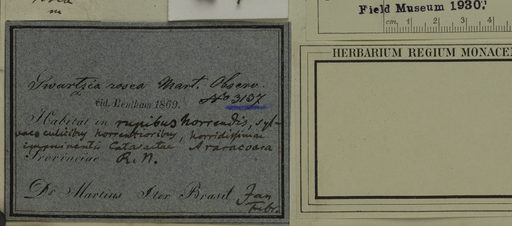 Field Museum 1930.
cm. 1 2 3 4
HERBARIUM REGIUM MONACEN
Swartzia rosea Mart. Observ.
vid. Bentham 1869. No 3157
Habitat in rupibus horrendis, syl-
horridissimae
imminentis Cataractae Araracoara
Provinciae R. N.
Dr Martius Iter Brasil Jan
Febr.